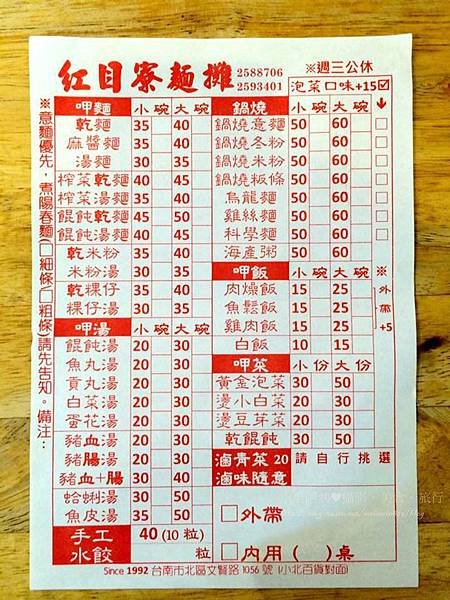 紅目寮麵攤 2588706
2593401
※週三公休
泡菜口味+15☑
呷麵 小碗 大碗
乾麵 35 40
麻醬麵 35 40
湯麵 30 35
榨菜乾麵 40 45
榨菜湯麵 35 40
餛飩乾麵 45 50
餛飩湯麵 40 45
乾米粉 35 40
米粉湯 30 35
乾粿仔 35 40
粿仔湯 30 35
呷湯 小碗 大碗
餛飩湯 20 30
魚丸湯 20 30
貢丸湯 20 30
白菜湯 20 30
蛋花湯 20 30
豬血湯 20 30
豬腸湯 20 30
豬血+腸 30 40
蛤蜊湯 30 50
魚皮湯 30 50
手工水餃 40 (10粒)
粒
鍋燒 小碗 大碗
鍋燒意麵 50 60
鍋燒冬粉 50 60
鍋燒米粉 50 60
鍋燒粄條 50 60
烏龍麵 50 60
雞絲麵 50 60
科學麵 50 60
海產粥 50 60
呷飯 小碗 大碗
肉燥飯 15 25
魚鬆飯 15 25
雞肉飯 15 25
白飯 10 15
※外帶+5
呷菜 小份 大份
黃金泡菜 30 50
燙小白菜 20 30
燙豆芽菜 20 30
乾餛飩 30 50
滷青菜 20 請自行挑選
滷味隨意
□外帶
□內用( )桌
※意麵優先，煮陽春麵(□細條□粗條)請先告知。備注：
Since 1992 台南市北區文賢路1056號(小北百貨對面)